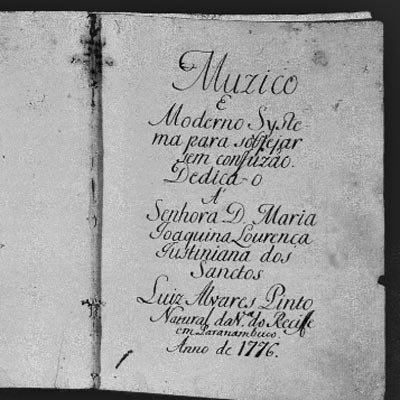 Muzico
E
Moderno Syste
ma para solfejar
sem confuzão.
Dedica-o
A'
Senhora D. Maria
Joaquina Lourença
Justiniana dos
Sanctos
Luiz Alvares Pinto
Natural da V.ª do Recife
em Paranambuco.
Anno de 1776.